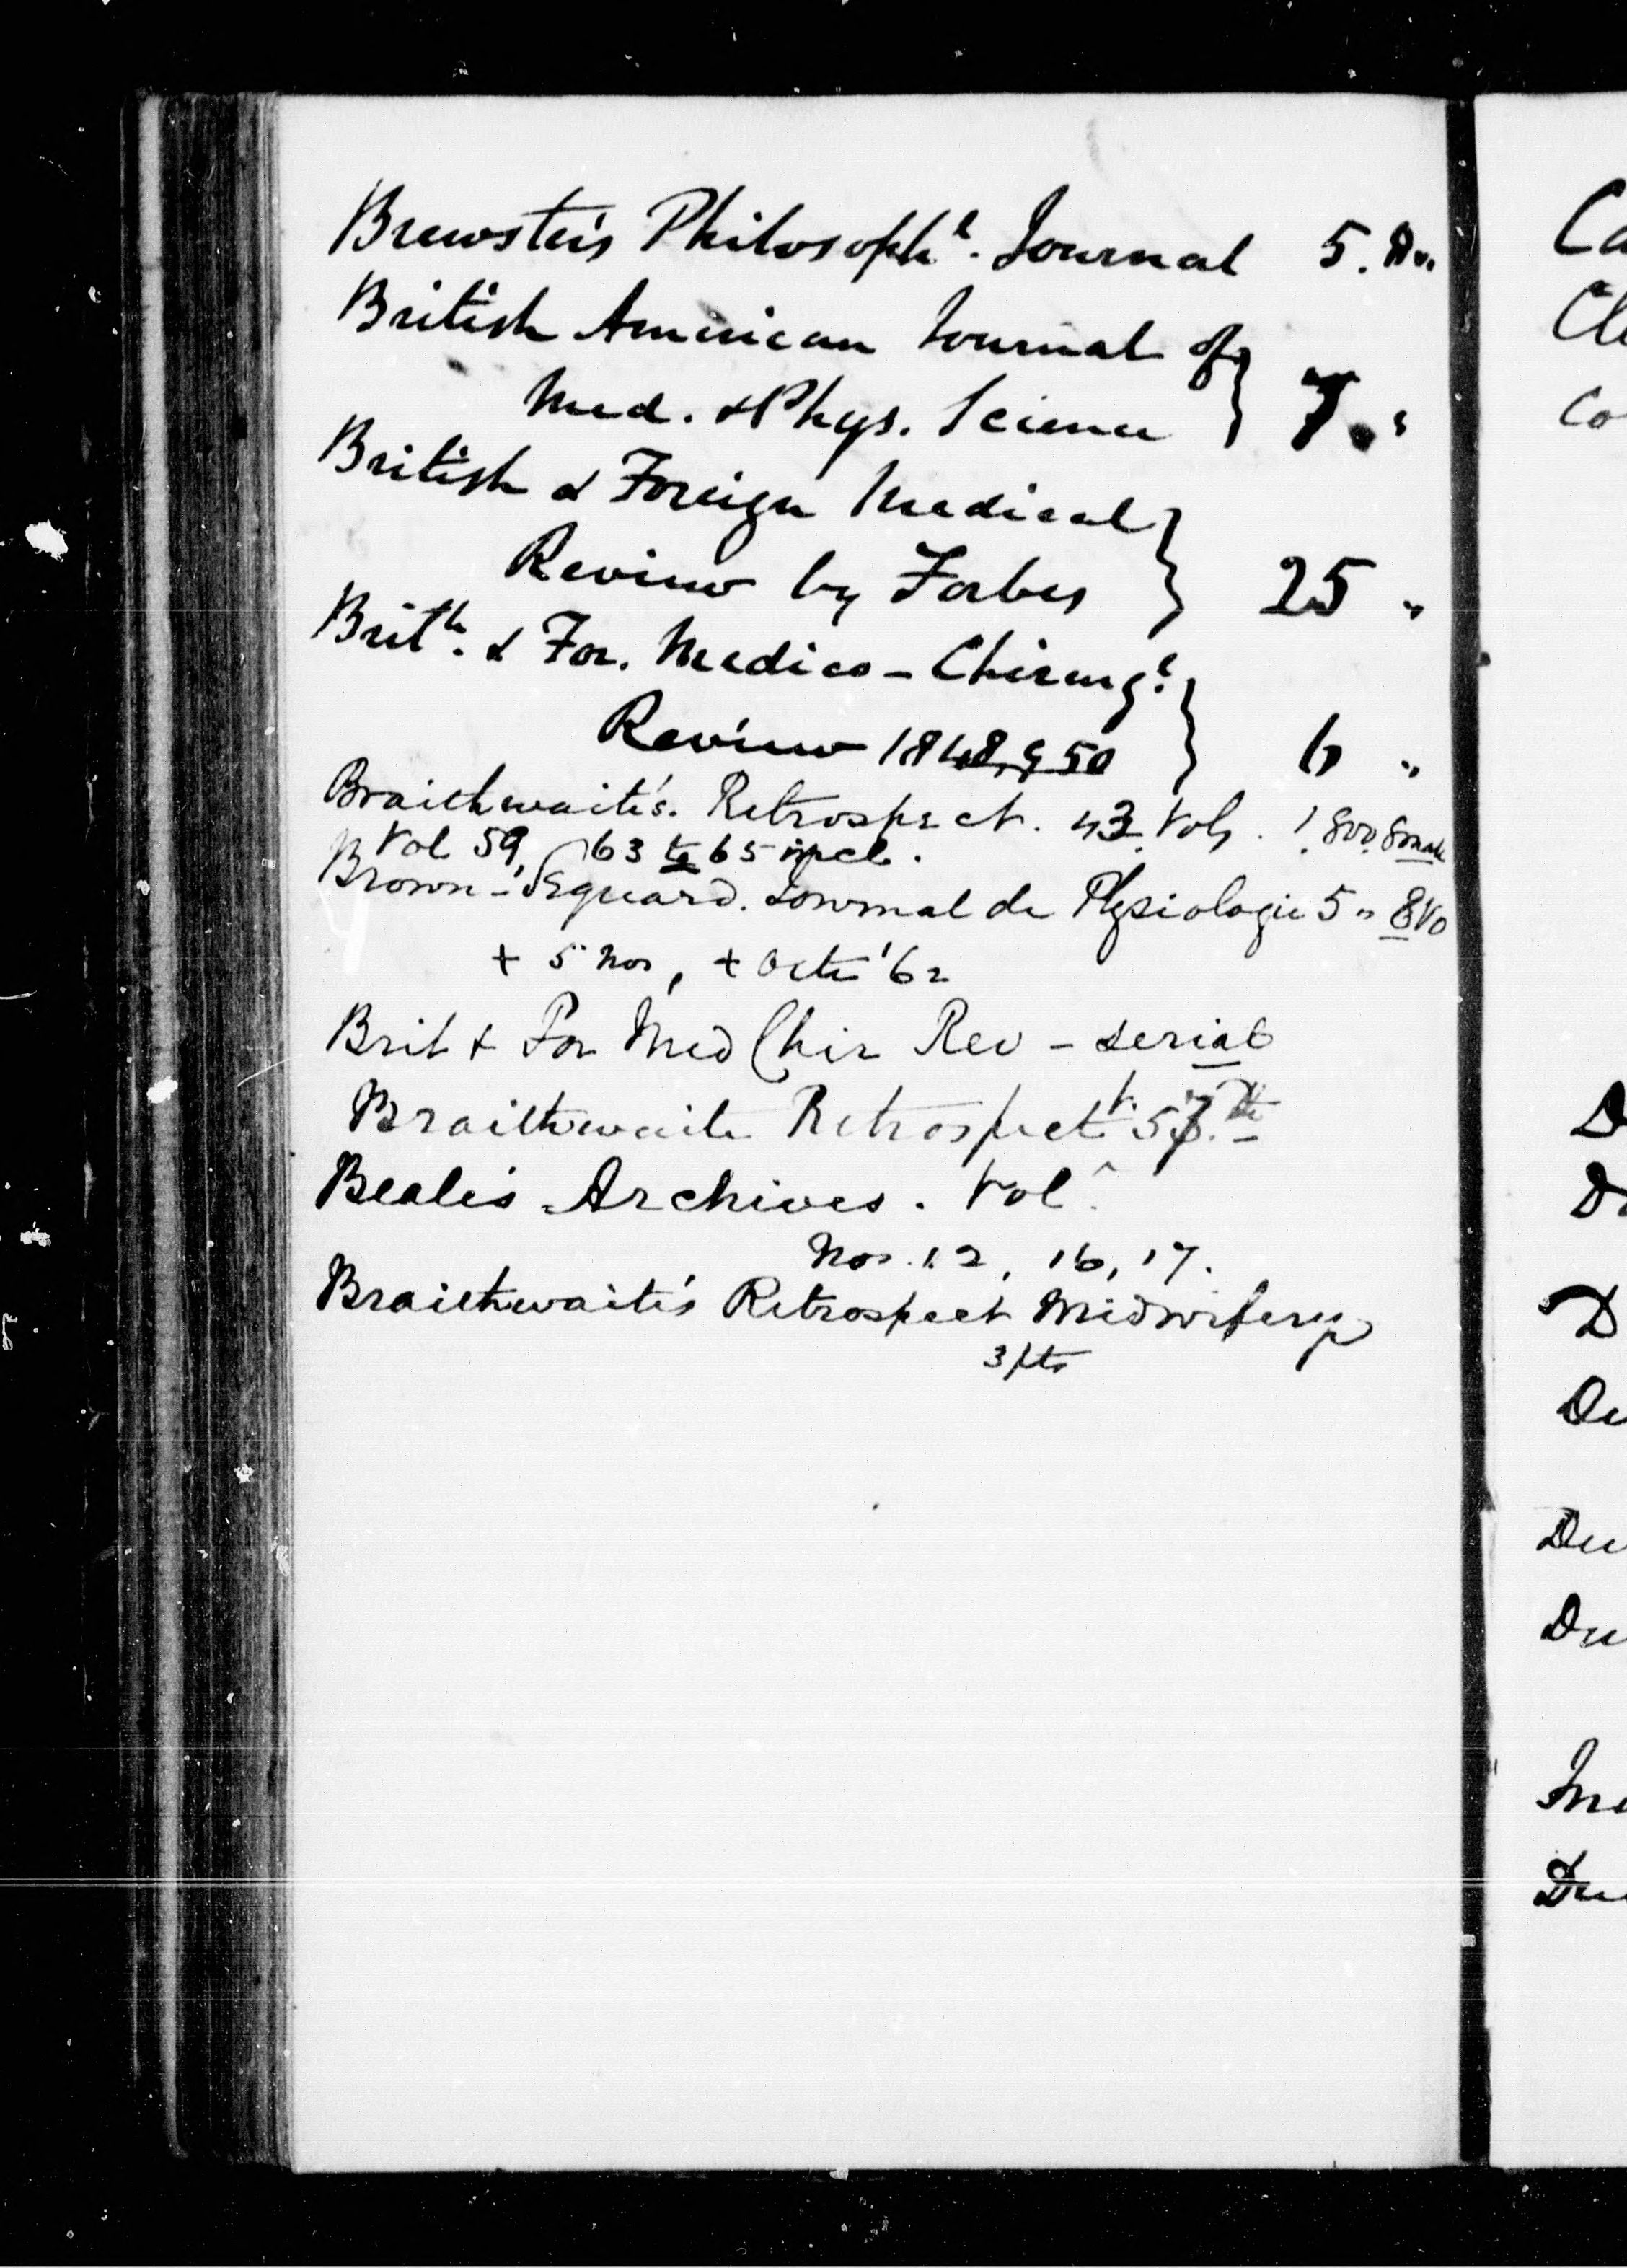 Brewster's Philosophl. Journal 5. 8vo.
British American Journal of
Med. & Phys. Science } 7. "
British & Foreign Medical
Review by Forbes } 25 "
Brith. & For. Medico-Chirurgl.
Review 1848, 9, 50 } 6 "
Braithwaite's. Retrospect. 43 Vols.
Vol 59, 63 to 65 incl.
Brown-Sequard. Journal de Physiologie 5 " 8vo
+ 5 nos, + Octr '62
Brit & For Med Chir Rev - serial
Braithwaite Retrospect
Beale's Archives. Vol
Nos. 12, 16, 17.
Braithwaite's Retrospect Midwifery
3 pts
Ca
Cl
Co
D
D
D
Du
Du